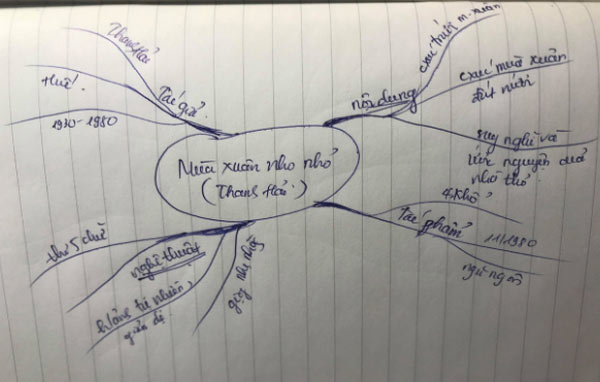 Mùa xuân nho nhỏ
(Thanh Hải)
Tác giả
Thanh Hải
Huế
1930-1980
nội dung
cxúc trước m.xuân
cxúc mùa xuân
đất nước
suy nghĩ và
ước nguyện của
nhà thơ
Tác phẩm
4 khổ
11/1980
ngũ ngôn
nghệ thuật
thơ 5 chữ
h/ảnh tự nhiên,
giản dị
nhẹ nhàng